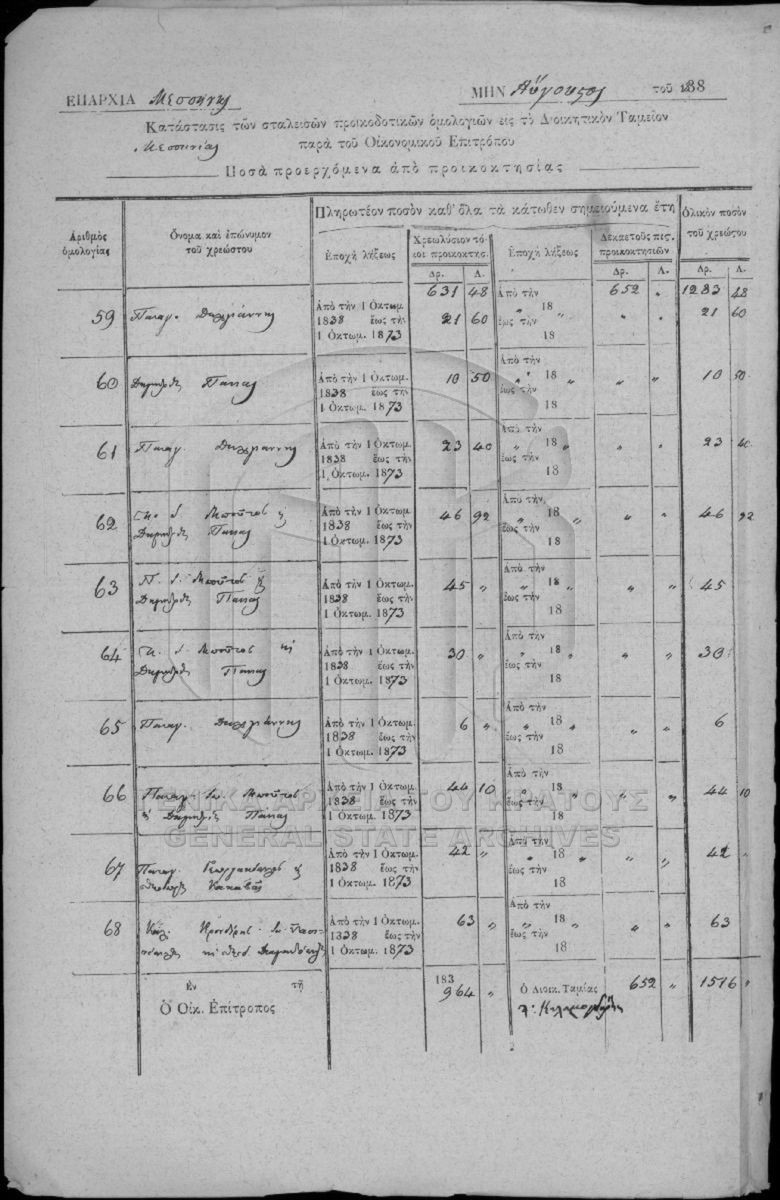 ΕΠΑΡΧΙΑ Μεσσήνης ΜΗΝ Αὔγουστος τοῦ 1838
Κατάστασις τῶν σταλεισῶν προικοδοτικῶν ὁμολογιῶν εἰς τὸ Διοικητικὸν Ταμεῖον
Μεσσηνίας παρὰ τοῦ Οἰκονομικοῦ Ἐπιτρόπου
Ποσὰ προερχόμενα ἀπὸ προικοκτησίας
Ἀριθμὸς ὁμολογίας
Ὄνομα καὶ ἐπώνυμον τοῦ χρεώστου
Πληρωτέον ποσὸν καθ' ὅλα τὰ κάτωθεν σημειούμενα ἔτη
Ὁλικὸν ποσὸν τοῦ χρεώστου
Ἐποχὴ λήξεως
Χρεωλύσιον τό-
κοι προικοκτησ.
Ἐποχὴ λήξεως
Δεκαετοῦς πιτ.
προικοκτησιῶν
Δρ. Λ. Δρ. Λ. Δρ. Λ.
631 48 652 " 1283 48
59 Παναγ. Δεληγιάννης Ἀπὸ τὴν 1 Ὀκτωμ. 1838 ἕως τὴν 1 Ὀκτωμ. 1873 21 60 Ἀπὸ τὴν " 18 " ἕως τὴν 18 " " 21 60
60 Δημήτριος Παπᾶς Ἀπὸ τὴν 1 Ὀκτωμ. 1838 ἕως τὴν 1 Ὀκτωμ. 1873 10 50 Ἀπὸ τὴν " 18 " ἕως τὴν 18 " " 10 50
61 Παναγ. Δεληγιάννης Ἀπὸ τὴν 1 Ὀκτωμ. 1838 ἕως τὴν 1 Ὀκτωμ. 1873 23 40 Ἀπὸ τὴν " 18 " ἕως τὴν 18 " " 23 40
62 Δημήτριος Παπᾶς Ἀπὸ τὴν 1 Ὀκτωμ. 1838 ἕως τὴν 1 Ὀκτωμ. 1873 46 92 Ἀπὸ τὴν " 18 " ἕως τὴν 18 " " 46 92
63 Δημήτριος Παπᾶς Ἀπὸ τὴν 1 Ὀκτωμ. 1838 ἕως τὴν 1 Ὀκτωμ. 1873 45 " Ἀπὸ τὴν " 18 " ἕως τὴν 18 " " 45
64 Δημήτριος Παπᾶς Ἀπὸ τὴν 1 Ὀκτωμ. 1838 ἕως τὴν 1 Ὀκτωμ. 1873 30 " Ἀπὸ τὴν " 18 " ἕως τὴν 18 " " 30 "
65 Παναγ. Δεληγιάννης Ἀπὸ τὴν 1 Ὀκτωμ. 1838 ἕως τὴν 1 Ὀκτωμ. 1873 6 " Ἀπὸ τὴν " 18 " ἕως τὴν 18 " " 6
66 Παναγ. Δημήτριος Παπᾶς Ἀπὸ τὴν 1 Ὀκτωμ. 1838 ἕως τὴν 1 Ὀκτωμ. 1873 44 10 Ἀπὸ τὴν " 18 " ἕως τὴν 18 " " 44 10
67 Παναγ. Ἀπὸ τὴν 1 Ὀκτωμ. 1838 ἕως τὴν 1 Ὀκτωμ. 1873 42 " Ἀπὸ τὴν " 18 " ἕως τὴν 18 " " 42 "
68 Ἀπὸ τὴν 1 Ὀκτωμ. 1838 ἕως τὴν 1 Ὀκτωμ. 1873 63 " Ἀπὸ τὴν " 18 " ἕως τὴν 18 " " 63
Ἐν τῇ 183
964 " Ὁ Διοικ. Ταμίας 652 " 1516 "
Ὁ Οἰκ. Ἐπίτροπος
ΓΕΝΙΚΑ ΑΡΧΕΙΑ ΤΟΥ ΚΡΑΤΟΥΣ
GENERAL STATE ARCHIVES